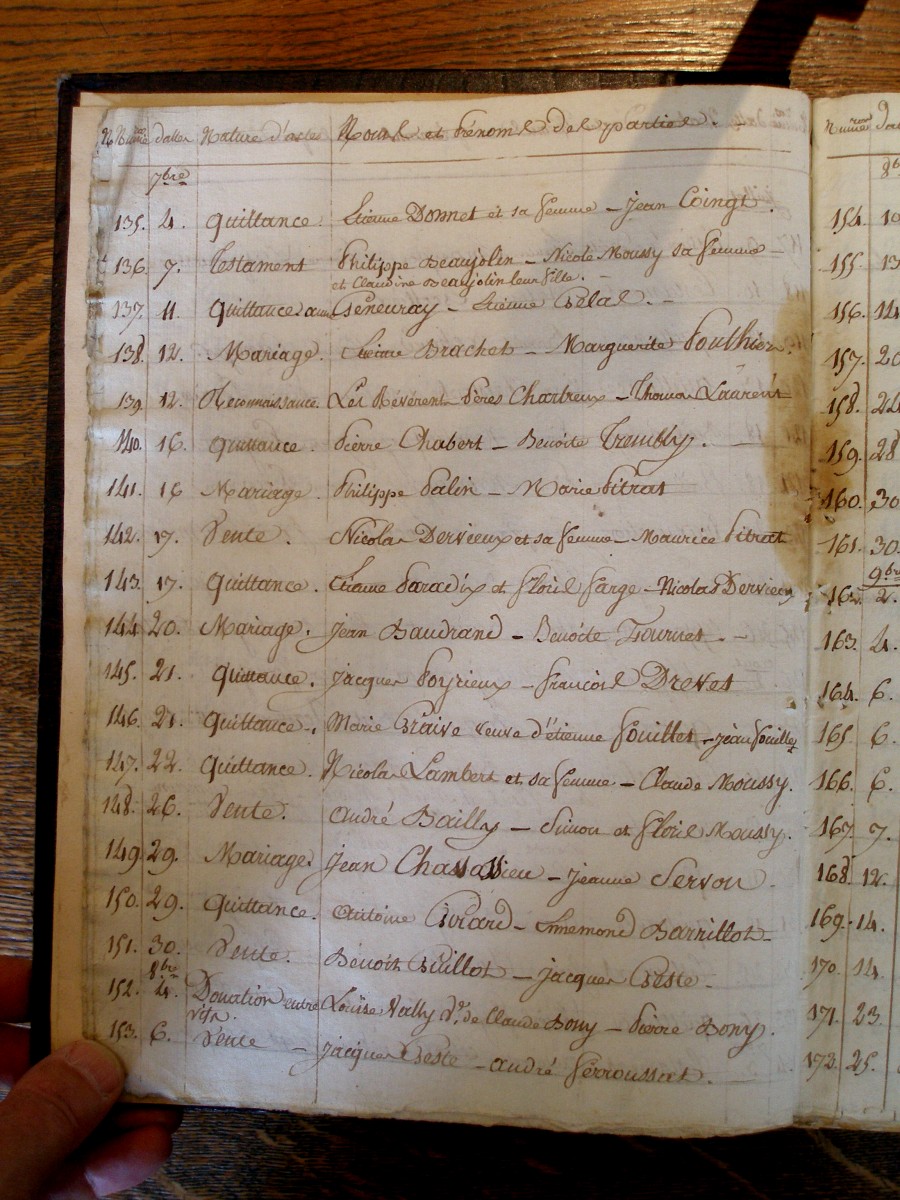 Numéros dattes Nature d'actes Noms et Prénoms des parties.
7bre
135. 4. Quittance. Etienne Donnet et sa femme - Jean Coingt.
136. 7. Testament Philippe Beaujolin - Nicole Moussy sa femme
et Claudine Beaujolin leur fille. -
137. 11. Quittance Geneuray - Etienne
138. 12. Mariage. Etienne Brachet - Marguerite Pouthier.
139. 12. Reconnaissance. Les Révérents Pères Chartreux - Thomas Laurent
140. 16. Quittance. Pierre Chabert - Benoite Trembly.
141. 16 Mariage. Philippe Palin - Marie Pitrat
142. 17. Vente. Nicolas Dervieux et sa femme - Maurice Pitrat
143. 17. Quittance. Etienne Paradix et Floris Farge - Nicolas Dervieux
144. 20. Mariage. Jean Baudrand - Benoite Fournet. -
145. 21. Quittance. Jacques Poyrieux - François Drevet
146. 21. Quittance. Marie veuve d'étienne Pouillet - Jean Pouillet
147. 22. Quittance. Nicolas Lambert et sa femme - Claude Moussy.
148. 26. Vente. André Bailly - Simon et Floris Moussy.
149. 29. Mariage. Jean Chassassieu - Jeanne Servon.
150. 29. Quittance. Antoine Girard - Ennemond Barrillot.
151. 30. Vente. Benoit Guillot - Jacques Teste.
8bre
152. 4. Donation entre Louise Vally Ve. de Claude Bony - Pierre Bony.
vifs.
153. 6. Vente - Jacques Teste - André Ferroussat.
Numéros da
8b
154. 10
155. 13
156. 14
157. 20
158. 24
159. 28
160. 30
161. 30.
9bre
162. 2.
163. 4.
164. 6.
165. 6.
166. 6.
167. 7.
168. 12.
169. 14.
170. 14.
171. 23.
172. 25.